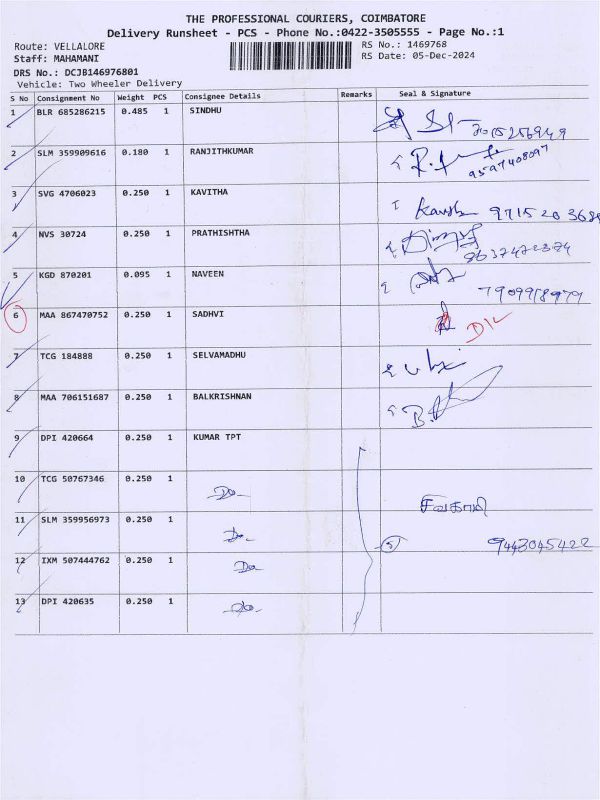 THE PROFESSIONAL COURIERS, COIMBATORE
Delivery Runsheet - PCS - Phone No.:0422-3505555 - Page No.:1
Route: VELLALORE
RS No.: 1469768
Staff: MAHAMANI
RS Date: 05-Dec-2024
DRS No.: DCJB146976801
Vehicle: Two Wheeler Delivery
S No Consignment No Weight PCS Consignee Details Remarks Seal & Signature
1 BLR 685286215 0.485 1 SINDHU
2 SLM 359909616 0.180 1 RANJITHKUMAR
9597408097
3 SVG 4706023 0.250 1 KAVITHA
9715203684
4 NVS 30724 0.250 1 PRATHISHTHA
5 KGD 870201 0.095 1 NAVEEN
7909918979
6 MAA 867470752 0.250 1 SADHVI
7 TCG 184888 0.250 1 SELVAMADHU
8 MAA 706151687 0.250 1 BALKRISHNAN
9 DPI 420664 0.250 1 KUMAR TPT
10 TCG 50767346 0.250 1 Do
சிவகாமி
11 SLM 359956973 0.250 1 Do
5 9443045422
12 IXM 507444762 0.250 1 Do
13 DPI 420635 0.250 1 Do